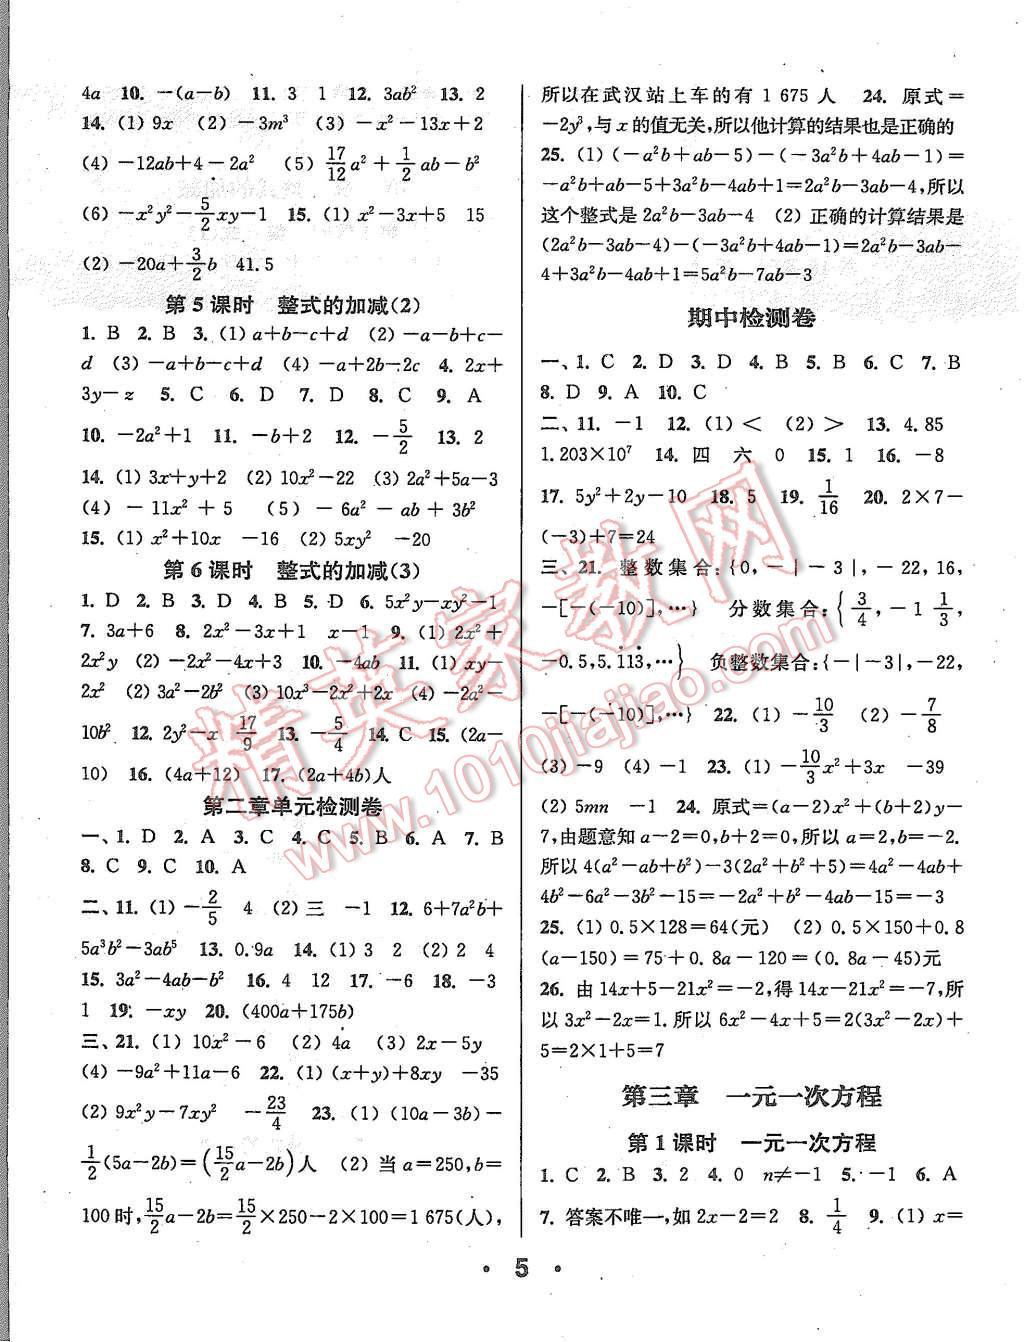 4a 10. -(a-b) 11. 3 1 12. 3ab² 13. 2
14. (1) 9x (2) -3m³ (3) -x²-13x+2
(4) -12ab+4-2a² (5) 17/12a²+1/2ab-b²
(6) -x²y²-5/2xy-1 15. (1) x²-3x+5 15
(2) -20a+3/2b 41.5
第5课时 整式的加减(2)
1. B 2. B 3. (1) a+b-c+d (2) -a-b+c-
d (3) -a+b-c+d (4) -a+2b-2c 4. 2x+
3y-z 5. C 6. D 7. D 8. C 9. A
10. -2a²+1 11. -b+2 12. -5/2 13. 2
14. (1) 3x+y+2 (2) 10x²-22 (3) 2a²+5a-3
(4) -11x²+5 (5) -6a²-ab+3b²
15. (1) x²+10x -16 (2) 5xy² -20
第6课时 整式的加减(3)
1. D 2. B 3. D 4. B 5. D 6. 5x²y-xy²-1
7. 3a+6 8. 2x²-3x+1 x-1 9. (1) 2x²+
2x²y (2) -2x²-4x+3 10. -4ab 11. (1) xy-
2x² (2) 3a²-2b² (3) 10x³-2x²+2x (4) -2a²-
10b² 12. 2y²-x 17/9 13. -5/4 14. C 15. (2a-
10) 16. (4a+12) 17. (2a+4b)人
第二章单元检测卷
一、1. D 2. A 3. C 4. C 5. B 6. A 7. B
8. C 9. C 10. A
二、11. (1) -2/5 4 (2) 三 -1 12. 6+7a²b+
5a³b²-3ab⁵ 13. 0.9a 14. (1) 3 2 (2) 2 4
15. 3a²-4ab-b² 16. 4 12 17. -6 18. -3
1 19. -xy 20. (400a+175b)
三、21. (1) 10x²-6 (2) 4a (3) 2x-5y
(4) -9a²+11a-6 22. (1) (x+y)+8xy -35
(2) 9x²y-7xy² -23/4 23. (1) (10a-3b)-
1/2(5a-2b)=(15/2a-2b)人 (2) 当a=250,b=
100时,15/2a-2b=15/2×250-2×100=1 675(人),
所以在武汉站上车的有1 675人 24. 原式=
-2y³,与x的值无关,所以他计算的结果也是正确的
25. (1) (-a²b+ab-5)-(-3a²b+4ab-1)=
-a²b+ab-5+3a²b-4ab+1=2a²b-3ab-4,所以
这个整式是2a²b-3ab-4 (2) 正确的计算结果是
(2a²b-3ab-4)-(-3a²b+4ab-1)=2a²b-3ab-
4+3a²b-4ab+1=5a²b-7ab-3
期中检测卷
一、1. C 2. D 3. D 4. B 5. B 6. C 7. B
8. D 9. A 10. C
二、11. -1 12. (1) < (2) > 13. 4.85
1.203×10⁷ 14. 四 六 0 15. 1 16. -8
17. 5y²+2y-10 18. 5 19. 1/16 20. 2×7-
(-3)+7=24
三、21. 整数集合:{0,-|-3|,-22,16,
-[-(-10)],…} 分数集合:{3/4,-1 1/3,
-0.5,5.1̇13̇,…} 负整数集合:{-|-3|,-22,
-[-(-10)],…} 22. (1) -10/3 (2) -7/8
(3) -9 (4) -1 23. (1) -10/3x²+3x -39
(2) 5mn -1 24. 原式=(a-2)x²+(b+2)y-
7,由题意知a-2=0,b+2=0,所以a=2,b=-2.
所以4(a²-ab+b²)-3(2a²+b²+5)=4a²-4ab+
4b²-6a²-3b²-15=-2a²+b²-4ab-15=-3
25. (1) 0.5×128=64(元) (2) 0.5×150+0.8
(a-150)=75+0.8a-120=(0.8a-45)元
26. 由14x+5-21x²=-2,得14x-21x²=-7,所
以3x²-2x=1.所以6x²-4x+5=2(3x²-2x)+
5=2×1+5=7
第三章 一元一次方程
第1课时 一元一次方程
1. C 2. B 3. 2 4. 0 n≠-1 5. -1 6. A
7. 答案不唯一,如2x-2=2 8. 1/4 9. (1) x=
· 5 ·
精英家教网
www.1010jiajiao.com